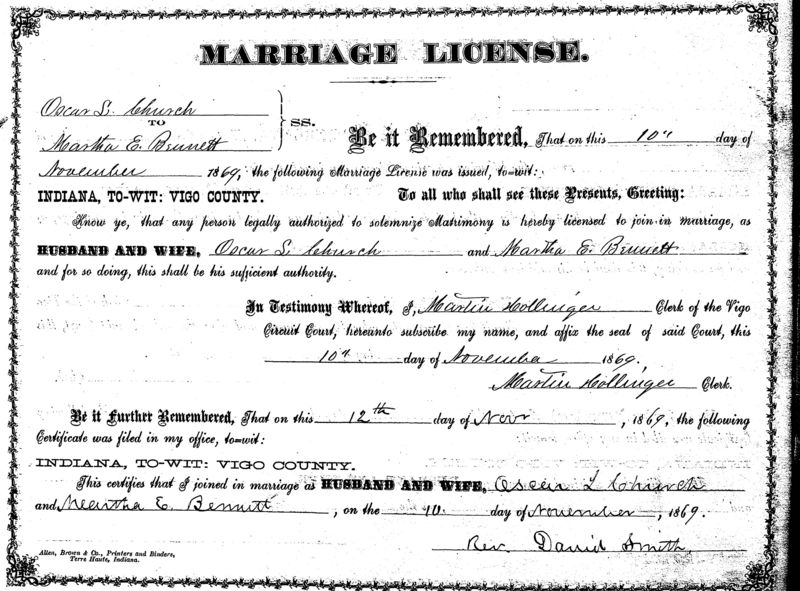 MARRIAGE LICENSE.
Oscar L. Church
TO
Martha E. Bennett
SS.
Be it Remembered, That on this 10" day of
November 1869, the following Marriage License was issued, to=wit:
INDIANA, TO-WIT: VIGO COUNTY. To all who shall see these Presents, Greeting:
Know ye, that any person legally authorized to solemnize Matrimony is hereby licensed to join in marriage, as
HUSBAND AND WIFE, Oscar L. Church and Martha E. Bennett
and for so doing, this shall be his sufficient authority.
In Testimony Whereof, I, Martin Hollinger Clerk of the Vigo
Circuit Court, hereunto subscribe my name, and affix the seal of said Court, this
10" day of November 1869.
Martin Hollinger Clerk.
Be it Further Remembered, That on this 12th day of Novr, 1869, the following
Certificate was filed in my office, to=wit:
INDIANA, TO-WIT: VIGO COUNTY.
This certifies that I joined in marriage as HUSBAND AND WIFE, Oscar L Church
and Martha E. Bennett, on the 10 day of November, 1869.
Rev. David Smith.
Allen, Brown & Co., Printers and Binders,
Terre Haute, Indiana.